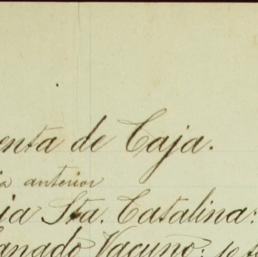 enta de Caja.
ia anterior
ia Sta. Catalina:
Ganado Vacuno: